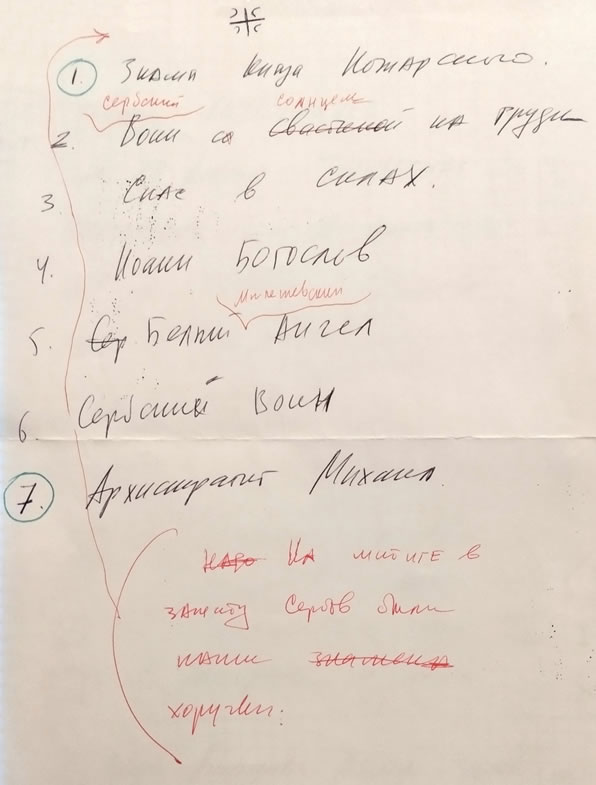 1. Знамя князя Пожарского.
сербский солнцем
2. Воин со свастикой на груди
3. Спас в силах.
4. Иоанн Богослов
Милешевский
5. Сер Белый Ангел
6. Сербский Воин
7. Архистратиг Михаил.
надо На митинге в
защиту Сербов были
наши знамена
хоругви.